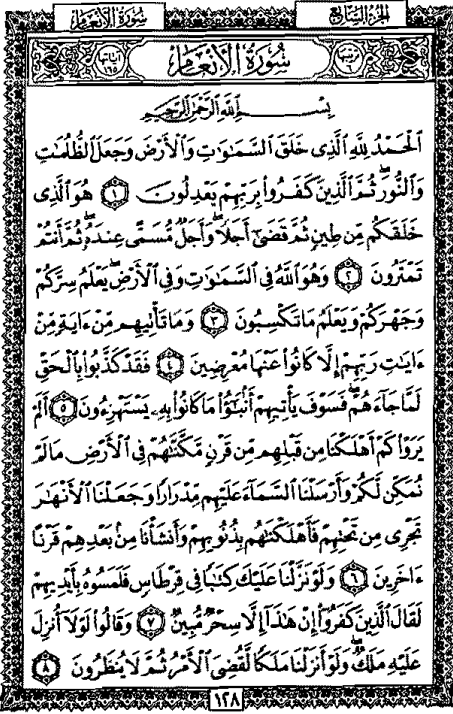 سُورَةُ الأَنْعَامِ
الجُزْءُ السَّابِعُ
آياتها ١٦٥
سُورَةُ الأَنْعَامِ
بِسْمِ اللَّهِ الرَّحْمَٰنِ الرَّحِيمِ
الْحَمْدُ لِلَّهِ الَّذِي خَلَقَ السَّمَاوَاتِ وَالْأَرْضَ وَجَعَلَ الظُّلُمَاتِ
وَالنُّورَ ۖ ثُمَّ الَّذِينَ كَفَرُوا بِرَبِّهِمْ يَعْدِلُونَ ١ هُوَ الَّذِي
خَلَقَكُم مِّن طِينٍ ثُمَّ قَضَىٰ أَجَلًا ۖ وَأَجَلٌ مُّسَمًّى عِندَهُ ۖ ثُمَّ أَنتُمْ
تَمْتَرُونَ ٢ وَهُوَ اللَّهُ فِي السَّمَاوَاتِ وَفِي الْأَرْضِ ۖ يَعْلَمُ سِرَّكُمْ
وَجَهْرَكُمْ وَيَعْلَمُ مَا تَكْسِبُونَ ٣ وَمَا تَأْتِيهِم مِّنْ ءَايَةٍ مِّنْ
ءَايَاتِ رَبِّهِمْ إِلَّا كَانُوا عَنْهَا مُعْرِضِينَ ٤ فَقَدْ كَذَّبُوا بِالْحَقِّ
لَمَّا جَاءَهُمْ ۖ فَسَوْفَ يَأْتِيهِمْ أَنبَاءُ مَا كَانُوا بِهِ يَسْتَهْزِءُونَ ٥ أَلَمْ
يَرَوْا كَمْ أَهْلَكْنَا مِن قَبْلِهِم مِّن قَرْنٍ مَّكَّنَّاهُمْ فِي الْأَرْضِ مَا لَمْ
نُمَكِّن لَّكُمْ وَأَرْسَلْنَا السَّمَاءَ عَلَيْهِم مِّدْرَارًا وَجَعَلْنَا الْأَنْهَارَ
تَجْرِي مِن تَحْتِهِمْ فَأَهْلَكْنَاهُم بِذُنُوبِهِمْ وَأَنشَأْنَا مِن بَعْدِهِمْ قَرْنًا
ءَاخَرِينَ ٦ وَلَوْ نَزَّلْنَا عَلَيْكَ كِتَابًا فِي قِرْطَاسٍ فَلَمَسُوهُ بِأَيْدِيهِمْ
لَقَالَ الَّذِينَ كَفَرُوا إِنْ هَٰذَا إِلَّا سِحْرٌ مُّبِينٌ ٧ وَقَالُوا لَوْلَا أُنزِلَ
عَلَيْهِ مَلَكٌ ۖ وَلَوْ أَنزَلْنَا مَلَكًا لَّقُضِيَ الْأَمْرُ ثُمَّ لَا يُنظَرُونَ ٨
١٢٨